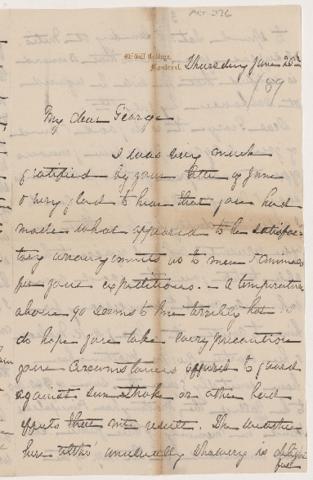 McGill College,
Montreal.
Thursday June 20th
/89
My dear George
I was very much
gratified by your letter of June
& very glad to hear that you had
made what appeared to be satisfac-
tory arrangements as to men & animals
for your expeditions. - A temperature
above 90 seems to me terribly hot
do hope you take every precaution
your circumstances afford to guard
against sun stroke or other bad
effects
The weather
here altho' unusually showery is delight
ful